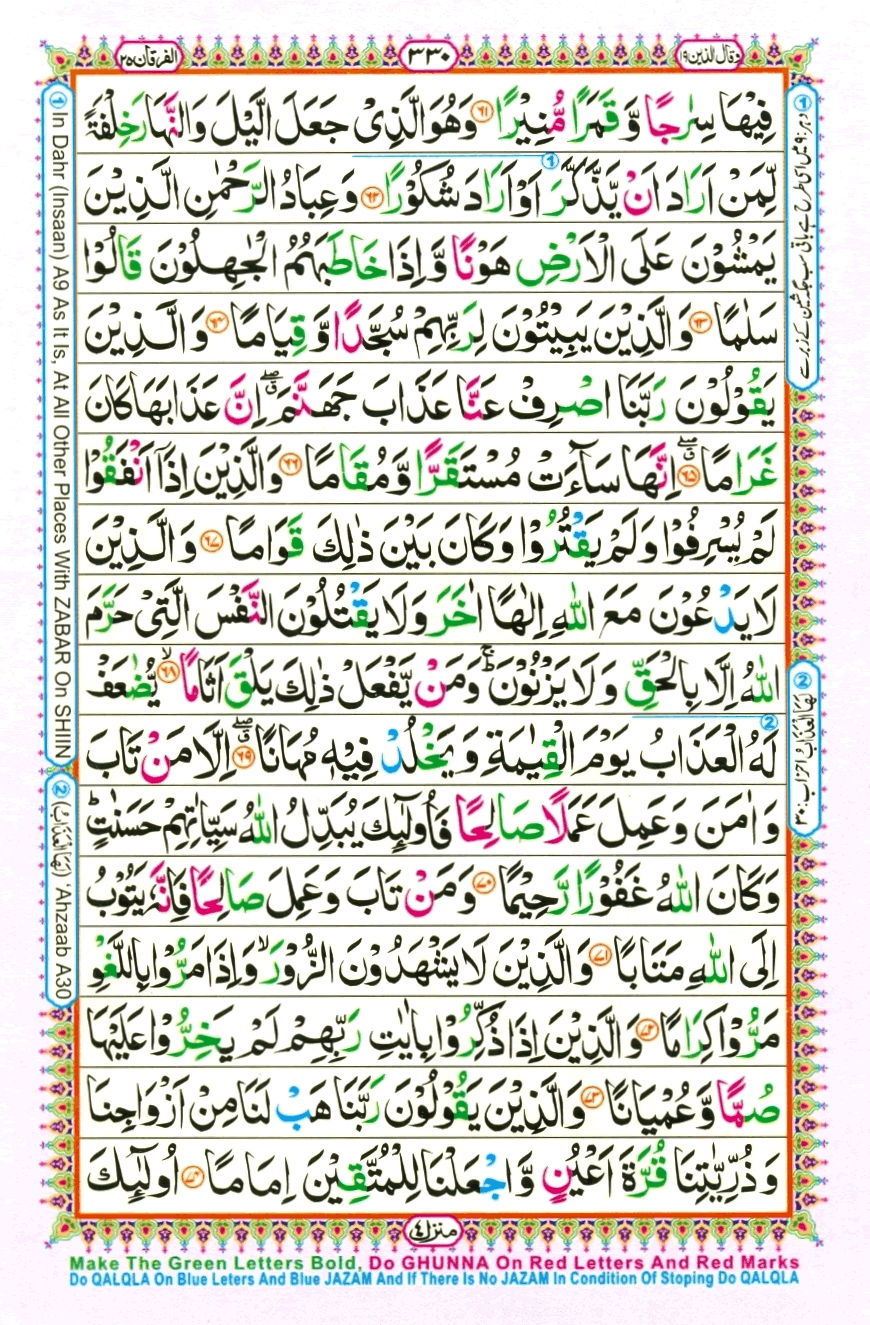 وقال الذين ١٩
٣٣٠
الفرقان ٢٥
فِيْهَا سِرٰجًا وَّ قَمَرًا مُّنِيْرًا ﴿۶۱﴾ وَهُوَ الَّذِيْ جَعَلَ الَّيْلَ وَالنَّهَارَ خِلْفَةً
لِّمَنْ اَرَادَ اَنْ يَّذَّكَّرَ اَوْ اَرَادَ شُكُوْرًا ﴿۶۲﴾ وَعِبَادُ الرَّحْمٰنِ الَّذِيْنَ
يَمْشُوْنَ عَلَى الْاَرْضِ هَوْنًا وَّ اِذَا خَاطَبَهُمُ الْجٰهِلُوْنَ قَالُوْا
سَلٰمًا ﴿۶۳﴾ وَالَّذِيْنَ يَبِيْتُوْنَ لِرَبِّهِمْ سُجَّدًا وَّ قِيَامًا ﴿۶۴﴾ وَالَّذِيْنَ
يَقُوْلُوْنَ رَبَّنَا اصْرِفْ عَنَّا عَذَابَ جَهَنَّمَ ۖۗ اِنَّ عَذَابَهَا كَانَ
غَرَامًا ﴿۶۵﴾ ۖۗ اِنَّهَا سَآءَتْ مُسْتَقَرًّا وَّمُقَامًا ﴿۶۶﴾ وَالَّذِيْنَ اِذَاۤ اَنْفَقُوْا
لَمْ يُسْرِفُوْا وَلَمْ يَقْتُرُوْا وَكَانَ بَيْنَ ذٰلِكَ قَوَامًا ﴿۶۷﴾ وَالَّذِيْنَ
لَا يَدْعُوْنَ مَعَ اللّٰهِ اِلٰهًا اٰخَرَ وَلَا يَقْتُلُوْنَ النَّفْسَ الَّتِيْ حَرَّمَ
اللّٰهُ اِلَّا بِالْحَقِّ وَلَا يَزْنُوْنَ ۚ وَمَنْ يَّفْعَلْ ذٰلِكَ يَلْقَ اَثَامًا ﴿۶۸﴾ۙ يُّضٰعَفْ
لَهُ الْعَذَابُ يَوْمَ الْقِيٰمَةِ وَيَخْلُدْ فِيْهٖ مُهَانًا ﴿۶۹﴾ ۖۗ اِلَّا مَنْ تَابَ
وَ اٰمَنَ وَعَمِلَ عَمَلًا صَالِحًا فَاُولٰٓئِكَ يُبَدِّلُ اللّٰهُ سَيِّاٰتِهِمْ حَسَنٰتٍ ؕ
وَكَانَ اللّٰهُ غَفُوْرًا رَّحِيْمًا ﴿۷۰﴾ وَمَنْ تَابَ وَعَمِلَ صَالِحًا فَاِنَّهٗ يَتُوْبُ
اِلَى اللّٰهِ مَتَابًا ﴿۷۱﴾ وَالَّذِيْنَ لَا يَشْهَدُوْنَ الزُّوْرَ ۙ وَاِذَا مَرُّوْا بِاللَّغْوِ
مَرُّوْا كِرَامًا ﴿۷۲﴾ وَالَّذِيْنَ اِذَا ذُكِّرُوْا بِاٰيٰتِ رَبِّهِمْ لَمْ يَخِرُّوْا عَلَيْهَا
صُمًّا وَّعُمْيَانًا ﴿۷۳﴾ وَالَّذِيْنَ يَقُوْلُوْنَ رَبَّنَا هَبْ لَنَا مِنْ اَزْوَاجِنَا
وَذُرِّيّٰتِنَا قُرَّةَ اَعْيُنٍ وَّاجْعَلْنَا لِلْمُتَّقِيْنَ اِمَامًا ﴿۷۴﴾ اُولٰٓئِكَ
منزل ٤
① In Dahr (Insaan) A9 As It Is, At All Other Places With ZABAR On SHIN
② (لَهَا الْعَذَابُ) 'Ahzaab A30
② لَهَا الْعَذَابُ احزاب:٣٠
Make The Green Letters Bold, Do GHUNNA On Red Letters And Red Marks
Do QALQLA On Blue Leters And Blue JAZAM And If There Is No JAZAM In Condition Of Stoping Do QALQLA